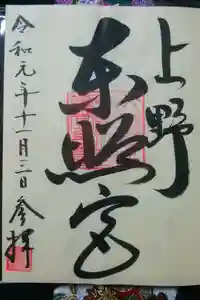 上野
東照宮
令和元年十一月三日参拝